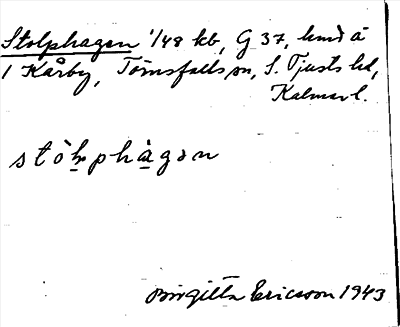 Stolphagen 1/48 kb, G 37, kmd å
1 Kårby, Törnsfalls sn, S. Tjusts hd,
Kalmar l.
stòl̠phà̠gən
Birgitta Ericsson 1943